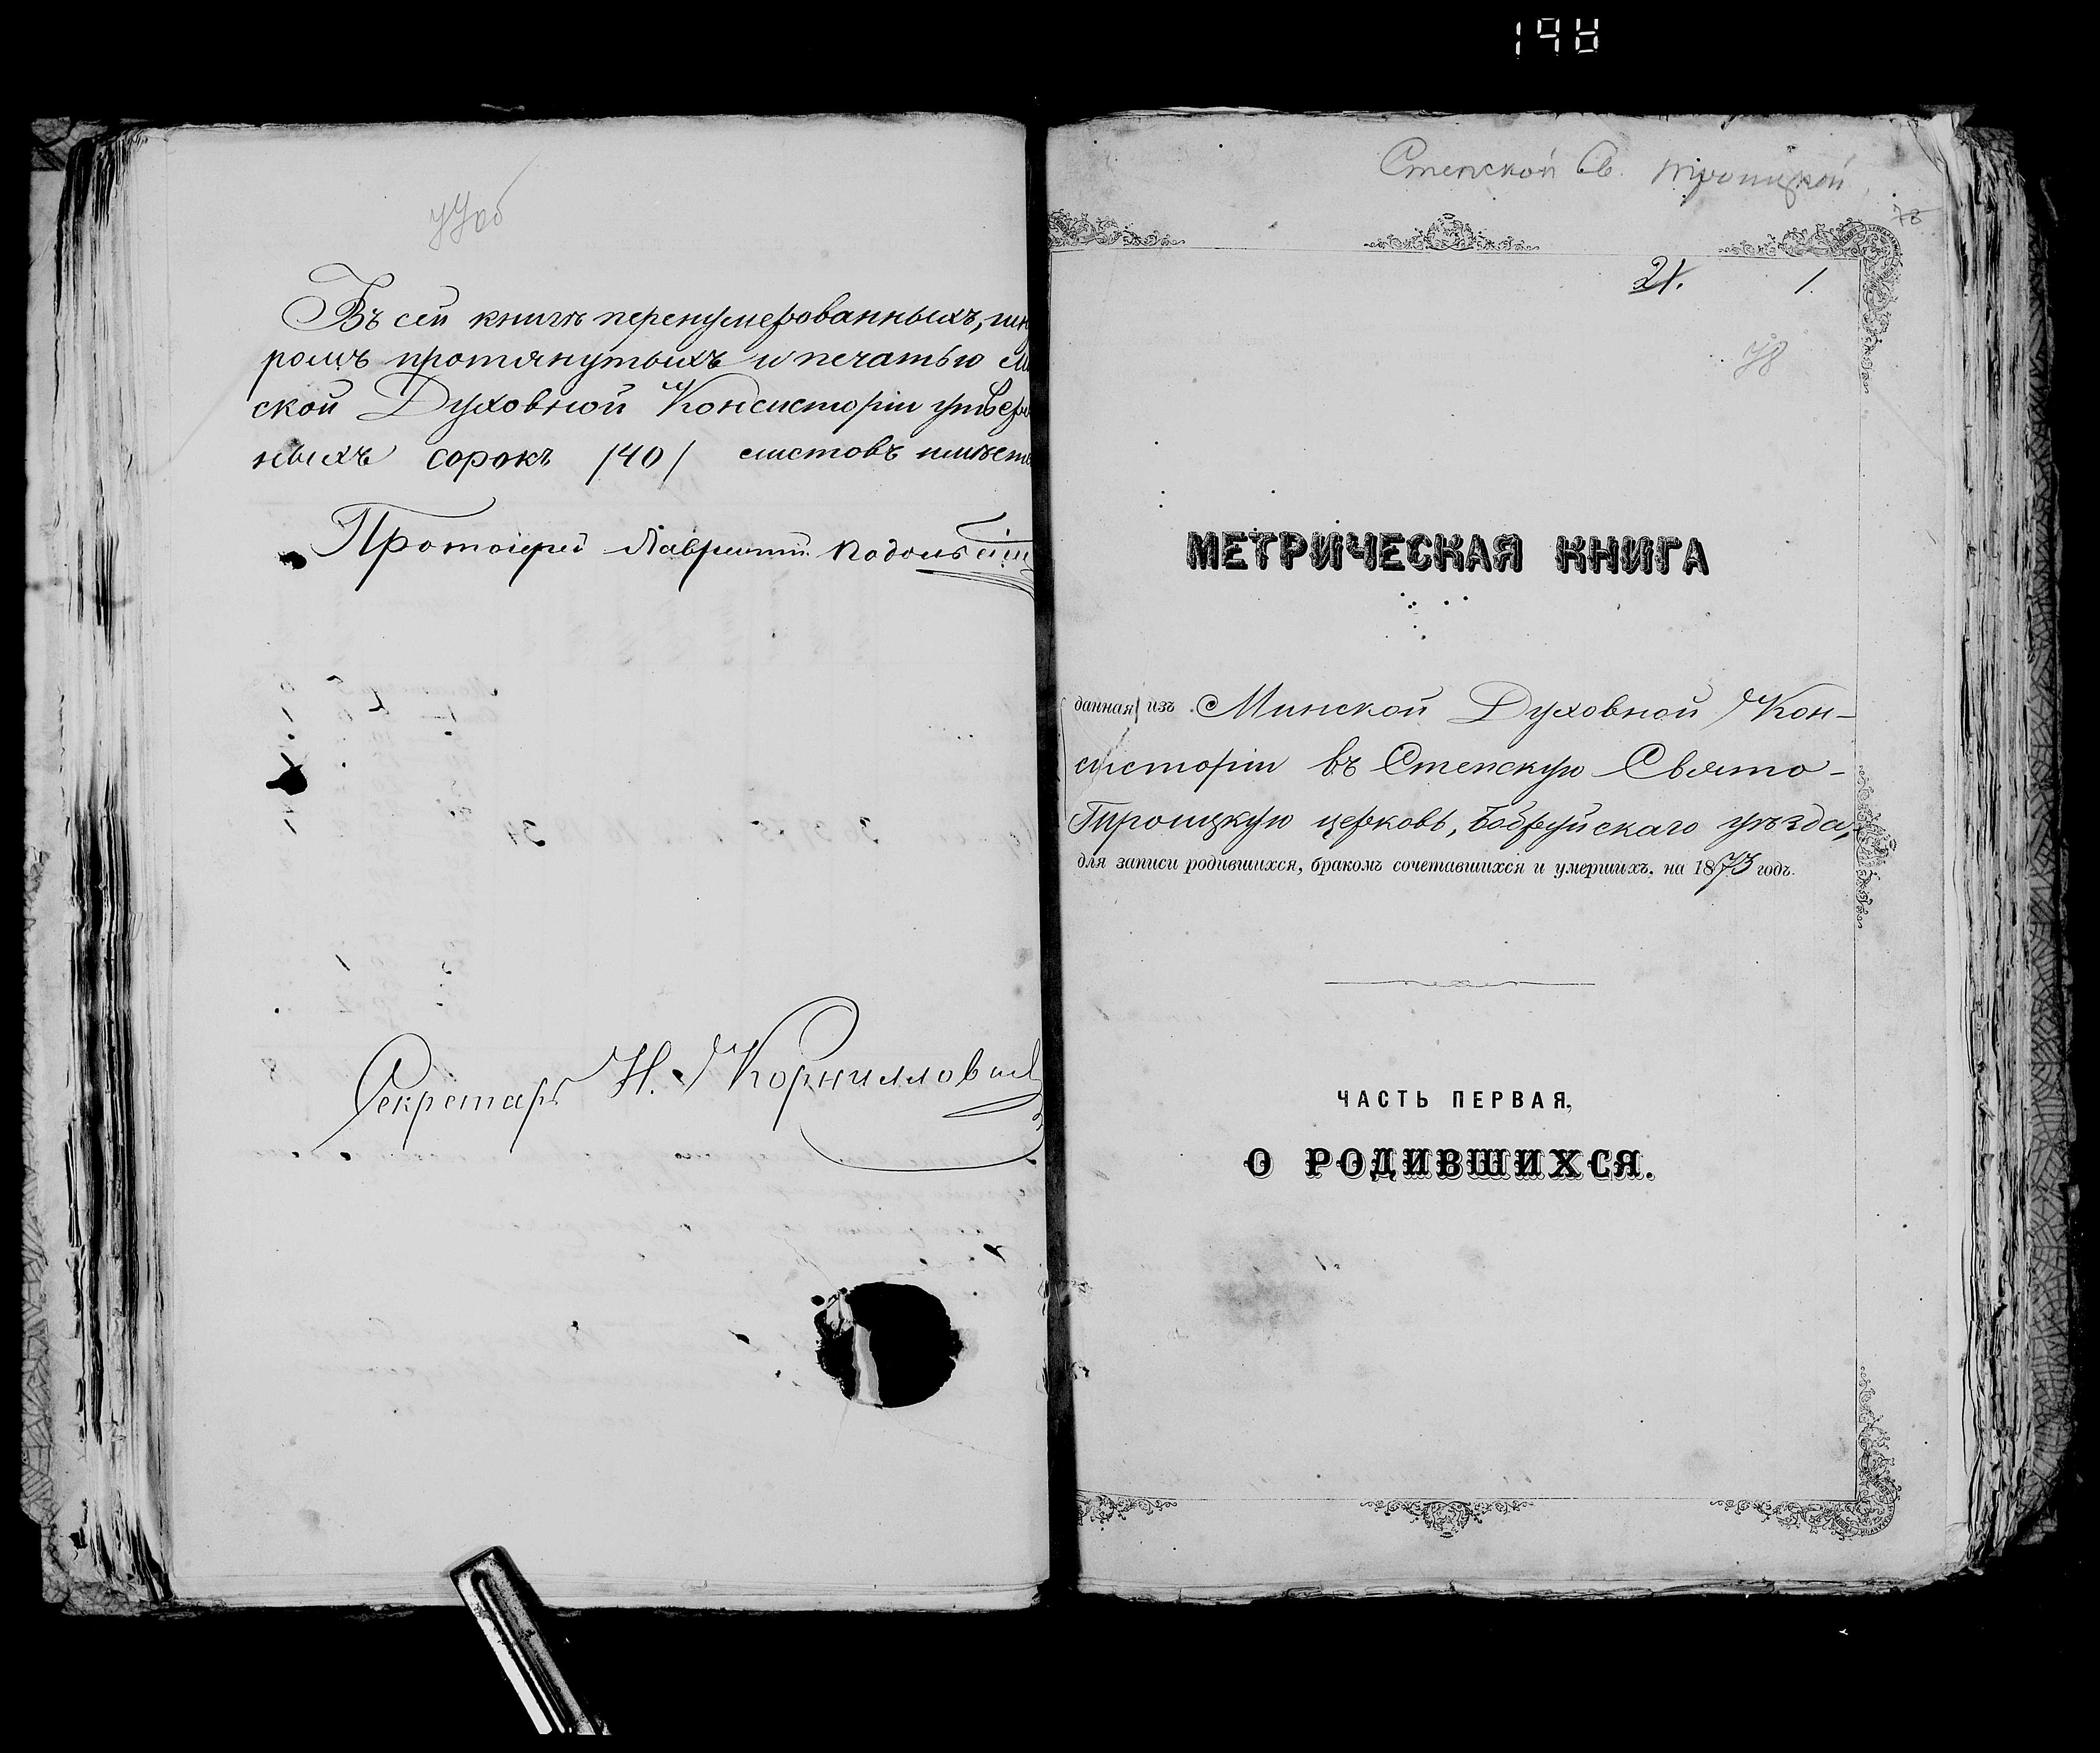 77об
Въ сей книгѣ перенумерованныхъ, шну
ромъ протянутыхъ и печатью Ми
ской Духовной Консисторіи утвер
ныхъ сорокъ /40/ листовъ имѣет
Протоіерей Лаврентій
Секретарь Н. Корнилловичъ
Степской Св. Троицкой
78
21. 1.
78
МЕТРИЧЕСКАЯ КНИГА
данная изъ Минской Духовной Кон-
систоріи въ Степскую Свято-
Троицкую церковь, Бобруйскаго уѣзда,
для записи родившихся, бракомъ сочетавшихся и умершихъ, на 1873 годъ.
ЧАСТЬ ПЕРВАЯ,
О РОДИВШИХСЯ.